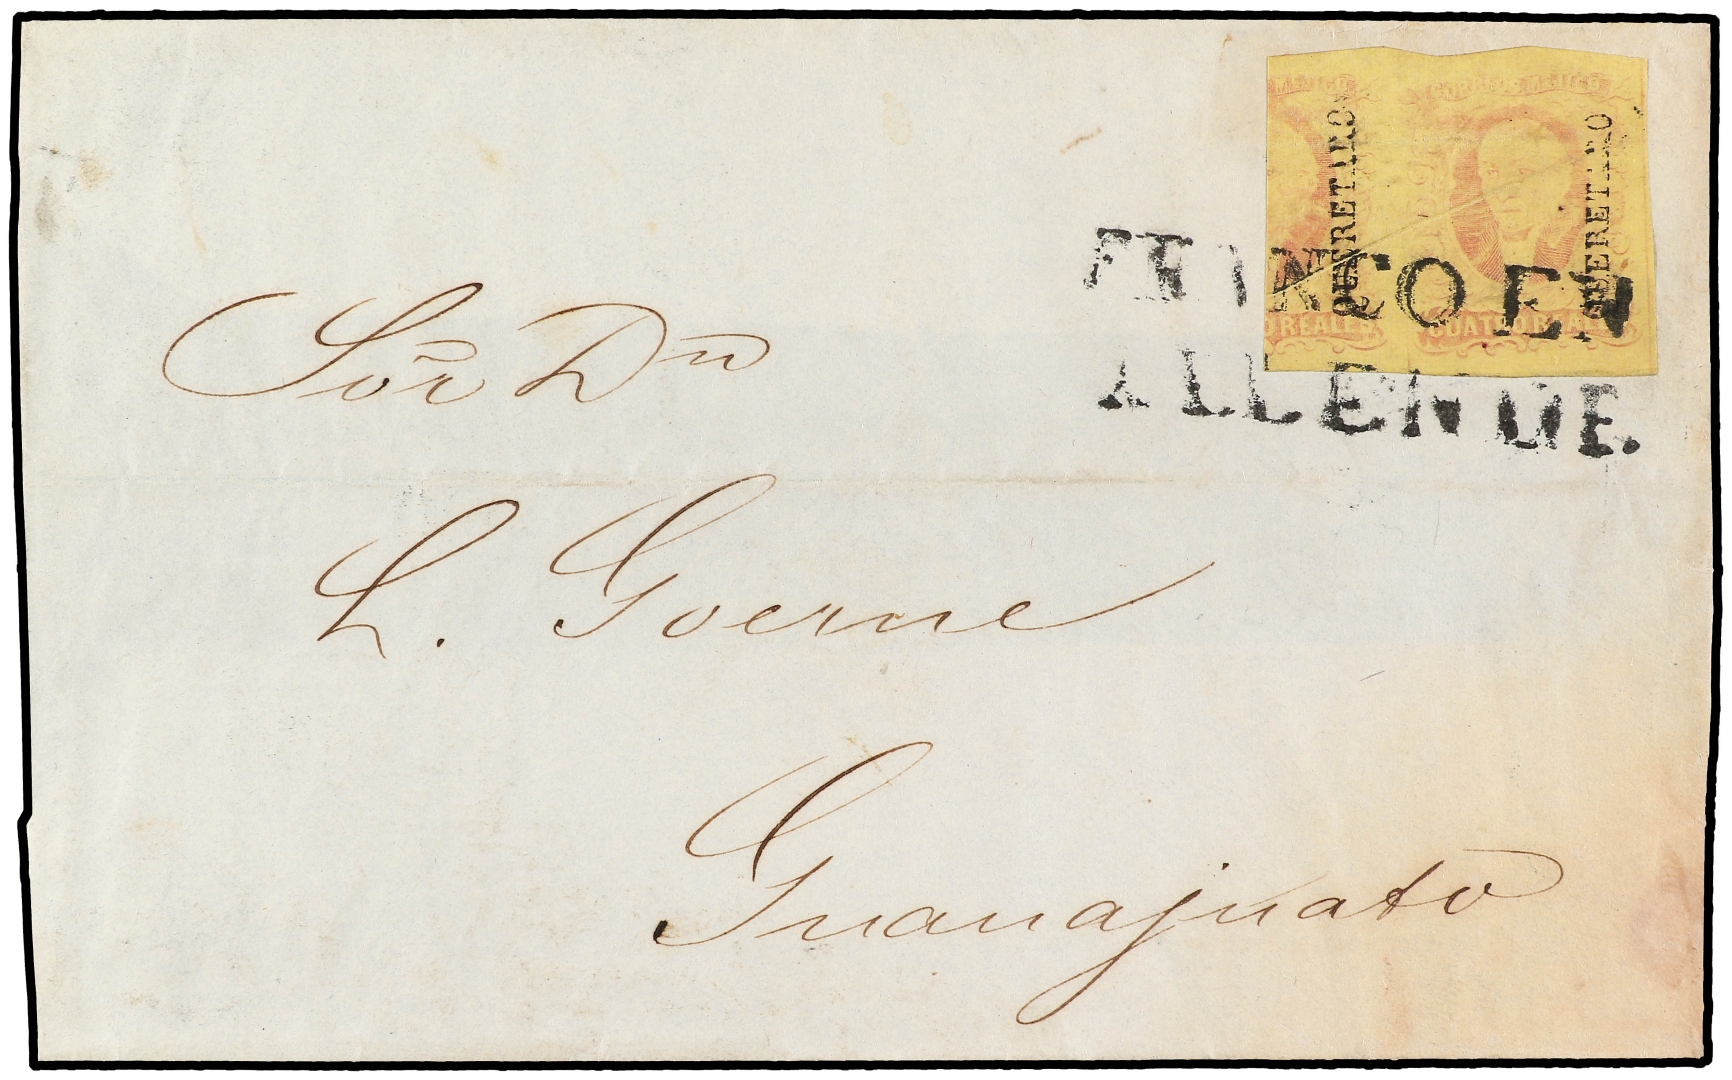 MEXICO
CORREOS MEXICO
QUERETARO
QUERETARO
FRANCO EN
ALLENDE.
O REALES.
CUATRO REALES
Sor Dn
L. Goerne
Guanajuato